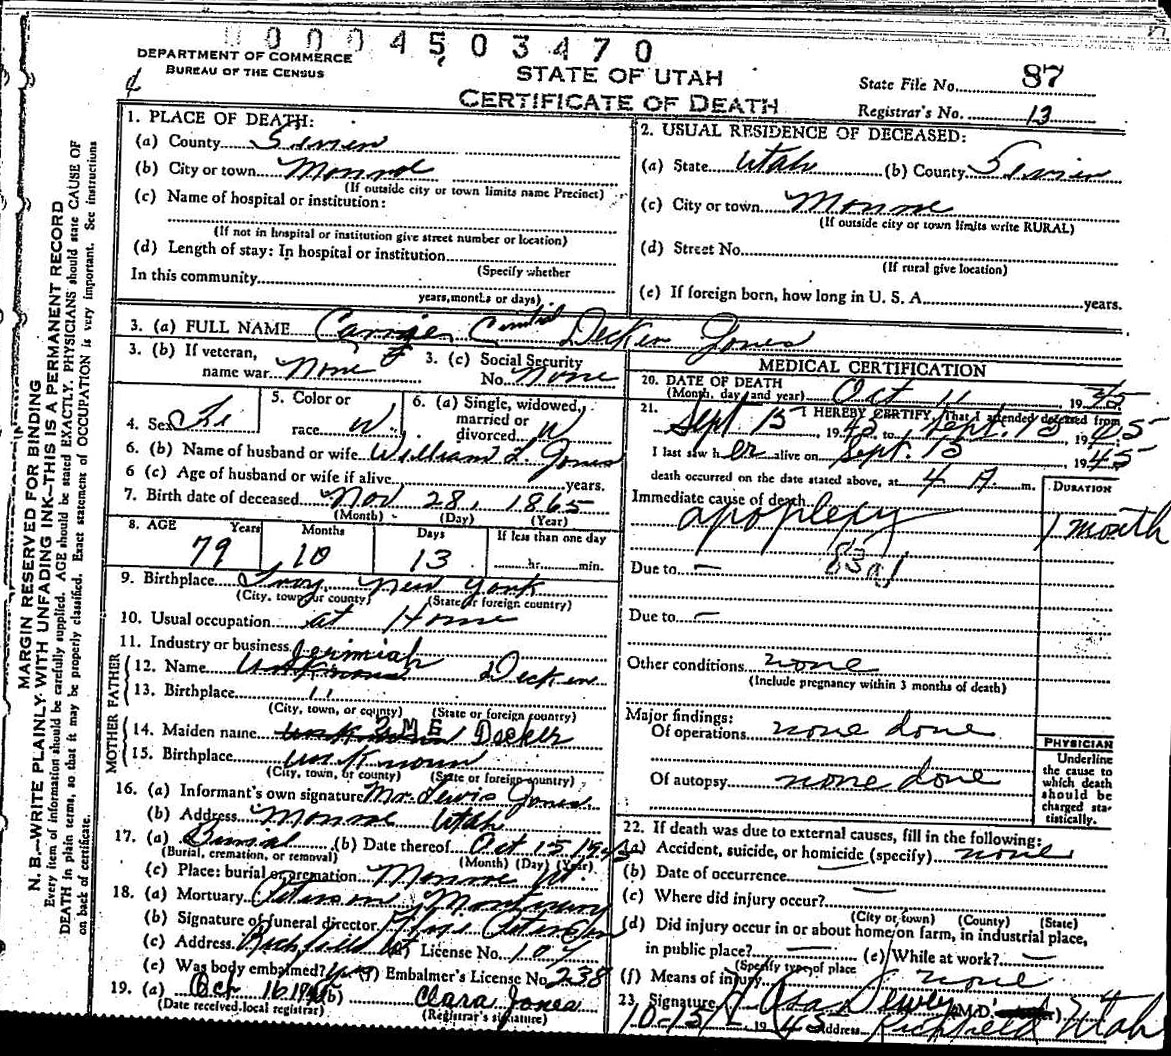 00004503470
DEPARTMENT OF COMMERCE
BUREAU OF THE CENSUS
STATE OF UTAH
CERTIFICATE OF DEATH
State File No. 87
Registrar's No. 13
MARGIN RESERVED FOR BINDING
N. B.—WRITE PLAINLY, WITH UNFADING INK—THIS IS A PERMANENT RECORD
Every item of information should be carefully supplied. AGE should be stated EXACTLY. PHYSICIANS should state CAUSE OF
DEATH in plain terms, so that it may be properly classified. Exact statement of OCCUPATION is very important. See instructions
on back of certificate.
1. PLACE OF DEATH:
(a) County Sevier
(b) City or town Monroe
(If outside city or town limits name Precinct)
(c) Name of hospital or institution:
(If not in hospital or institution give street number or location)
(d) Length of stay: In hospital or institution
(Specify whether
In this community
years, months or days)
2. USUAL RESIDENCE OF DECEASED:
(a) State Utah (b) County Sevier
(c) City or town Monroe
(If outside city or town limits write RURAL)
(d) Street No.
(If rural give location)
(e) If foreign born, how long in U. S. A. years.
3. (a) FULL NAME Decker Jones
3. (b) If veteran, name war None
3. (c) Social Security No. None
4. Sex Fe
5. Color or race W
6. (a) Single, widowed, married or divorced W
6. (b) Name of husband or wife William L. Jones
6 (c) Age of husband or wife if alive years.
7. Birth date of deceased Nov 28, 1865
(Month) (Day) (Year)
8. AGE Years Months Days If less than one day
79 10 13 hr. min.
9. Birthplace Troy, New York
(City, town, or county) (State or foreign country)
10. Usual occupation at Home
11. Industry or business
FATHER
Jerimiah
12. Name Unknown Decker
13. Birthplace "
(City, town, or county) (State or foreign country)
MOTHER
14. Maiden name Decker
15. Birthplace unknown
(City, town, or county) (State or foreign country)
16. (a) Informant's own signature Mr. Lewis Jones
(b) Address Monroe Utah
17. (a) Burial (b) Date thereof Oct 15 1945
(Burial, cremation, or removal) (Month) (Day) (Year)
(c) Place: burial or cremation Monroe Ut.
18. (a) Mortuary Petersen Mortuary
(b) Signature of funeral director Petersen
(c) Address Richfield Ut License No. 107
(e) Was body embalmed? yes (f) Embalmer's License No. 238
19. (a) Oct 16 1945 (b) Clara Jones
(Date received local registrar) (Registrar's signature)
MEDICAL CERTIFICATION
20. DATE OF DEATH
(Month, day and year) Oct 11 1945
21. I HEREBY CERTIFY, That I attended deceased from
Sept 15, 1945 to Sept. 18, 1945
I last saw h er alive on Sept. 18 1945
death occurred on the date stated above, at 4 A. m.
DURATION
Immediate cause of death
apoplexy 1 month
Due to — 83a1
Due to —
Other conditions none
(Include pregnancy within 3 months of death)
Major findings:
Of operations none done
Of autopsy none done
PHYSICIAN
Underline
the cause to
which death
should be
charged sta-
tistically.
22. If death was due to external causes, fill in the following:
(a) Accident, suicide, or homicide (specify) none
(b) Date of occurrence —
(c) Where did injury occur? —
(City or town) (County) (State)
(d) Did injury occur in or about home, on farm, in industrial place,
in public place? — (e) While at work? —
(Specify type of place
(f) Means of injury none
23. Signature Asa Dewey (M.D.
10-15 1945 Address Richfield Utah